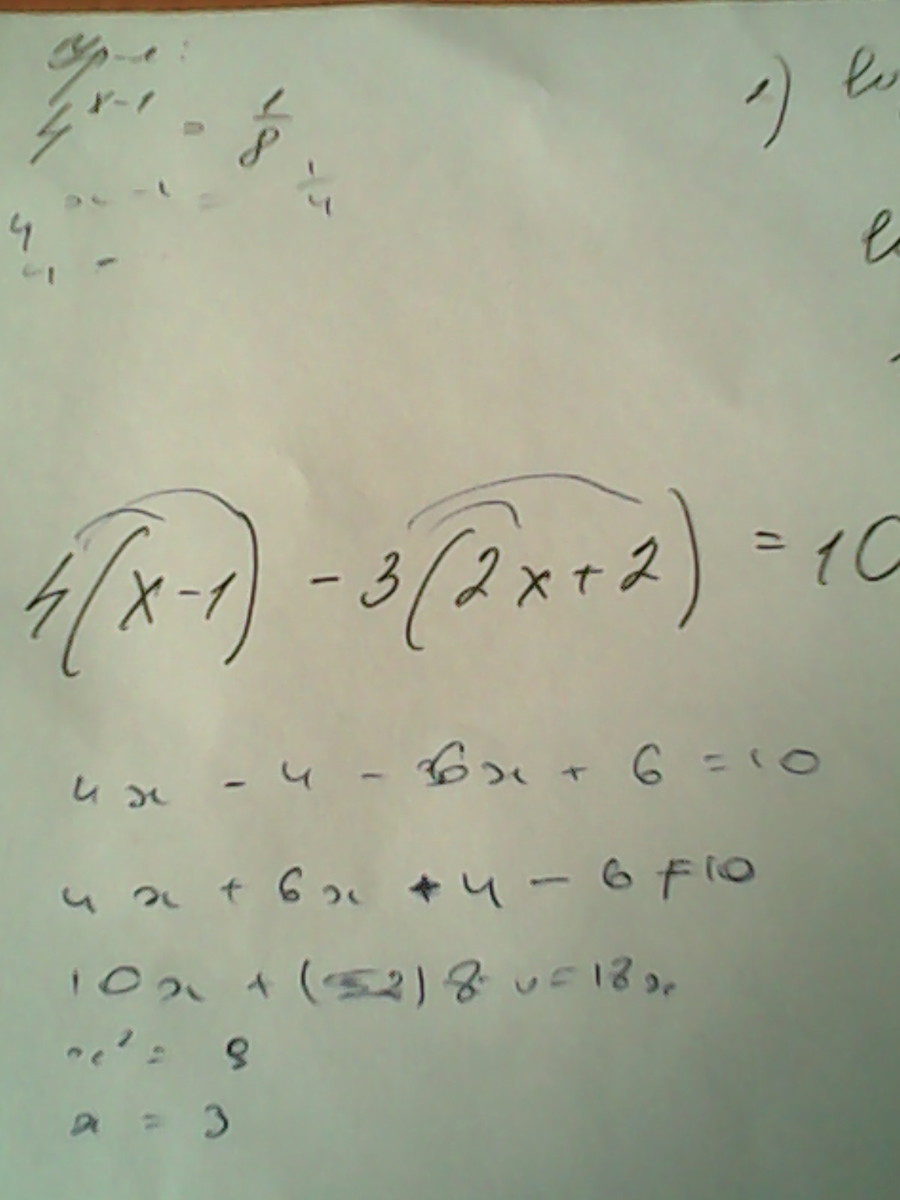 4^(x-1) = 1/8
4^(x-1) = 1/4
4 -
1)
4(x-1) - 3(2x+2) = 10
4x - 4 - 6x + 6 = 10
4x + 6x + 4 - 6 = 10
10x + ( 2) 8 = 18x
x² = 9
x = 3